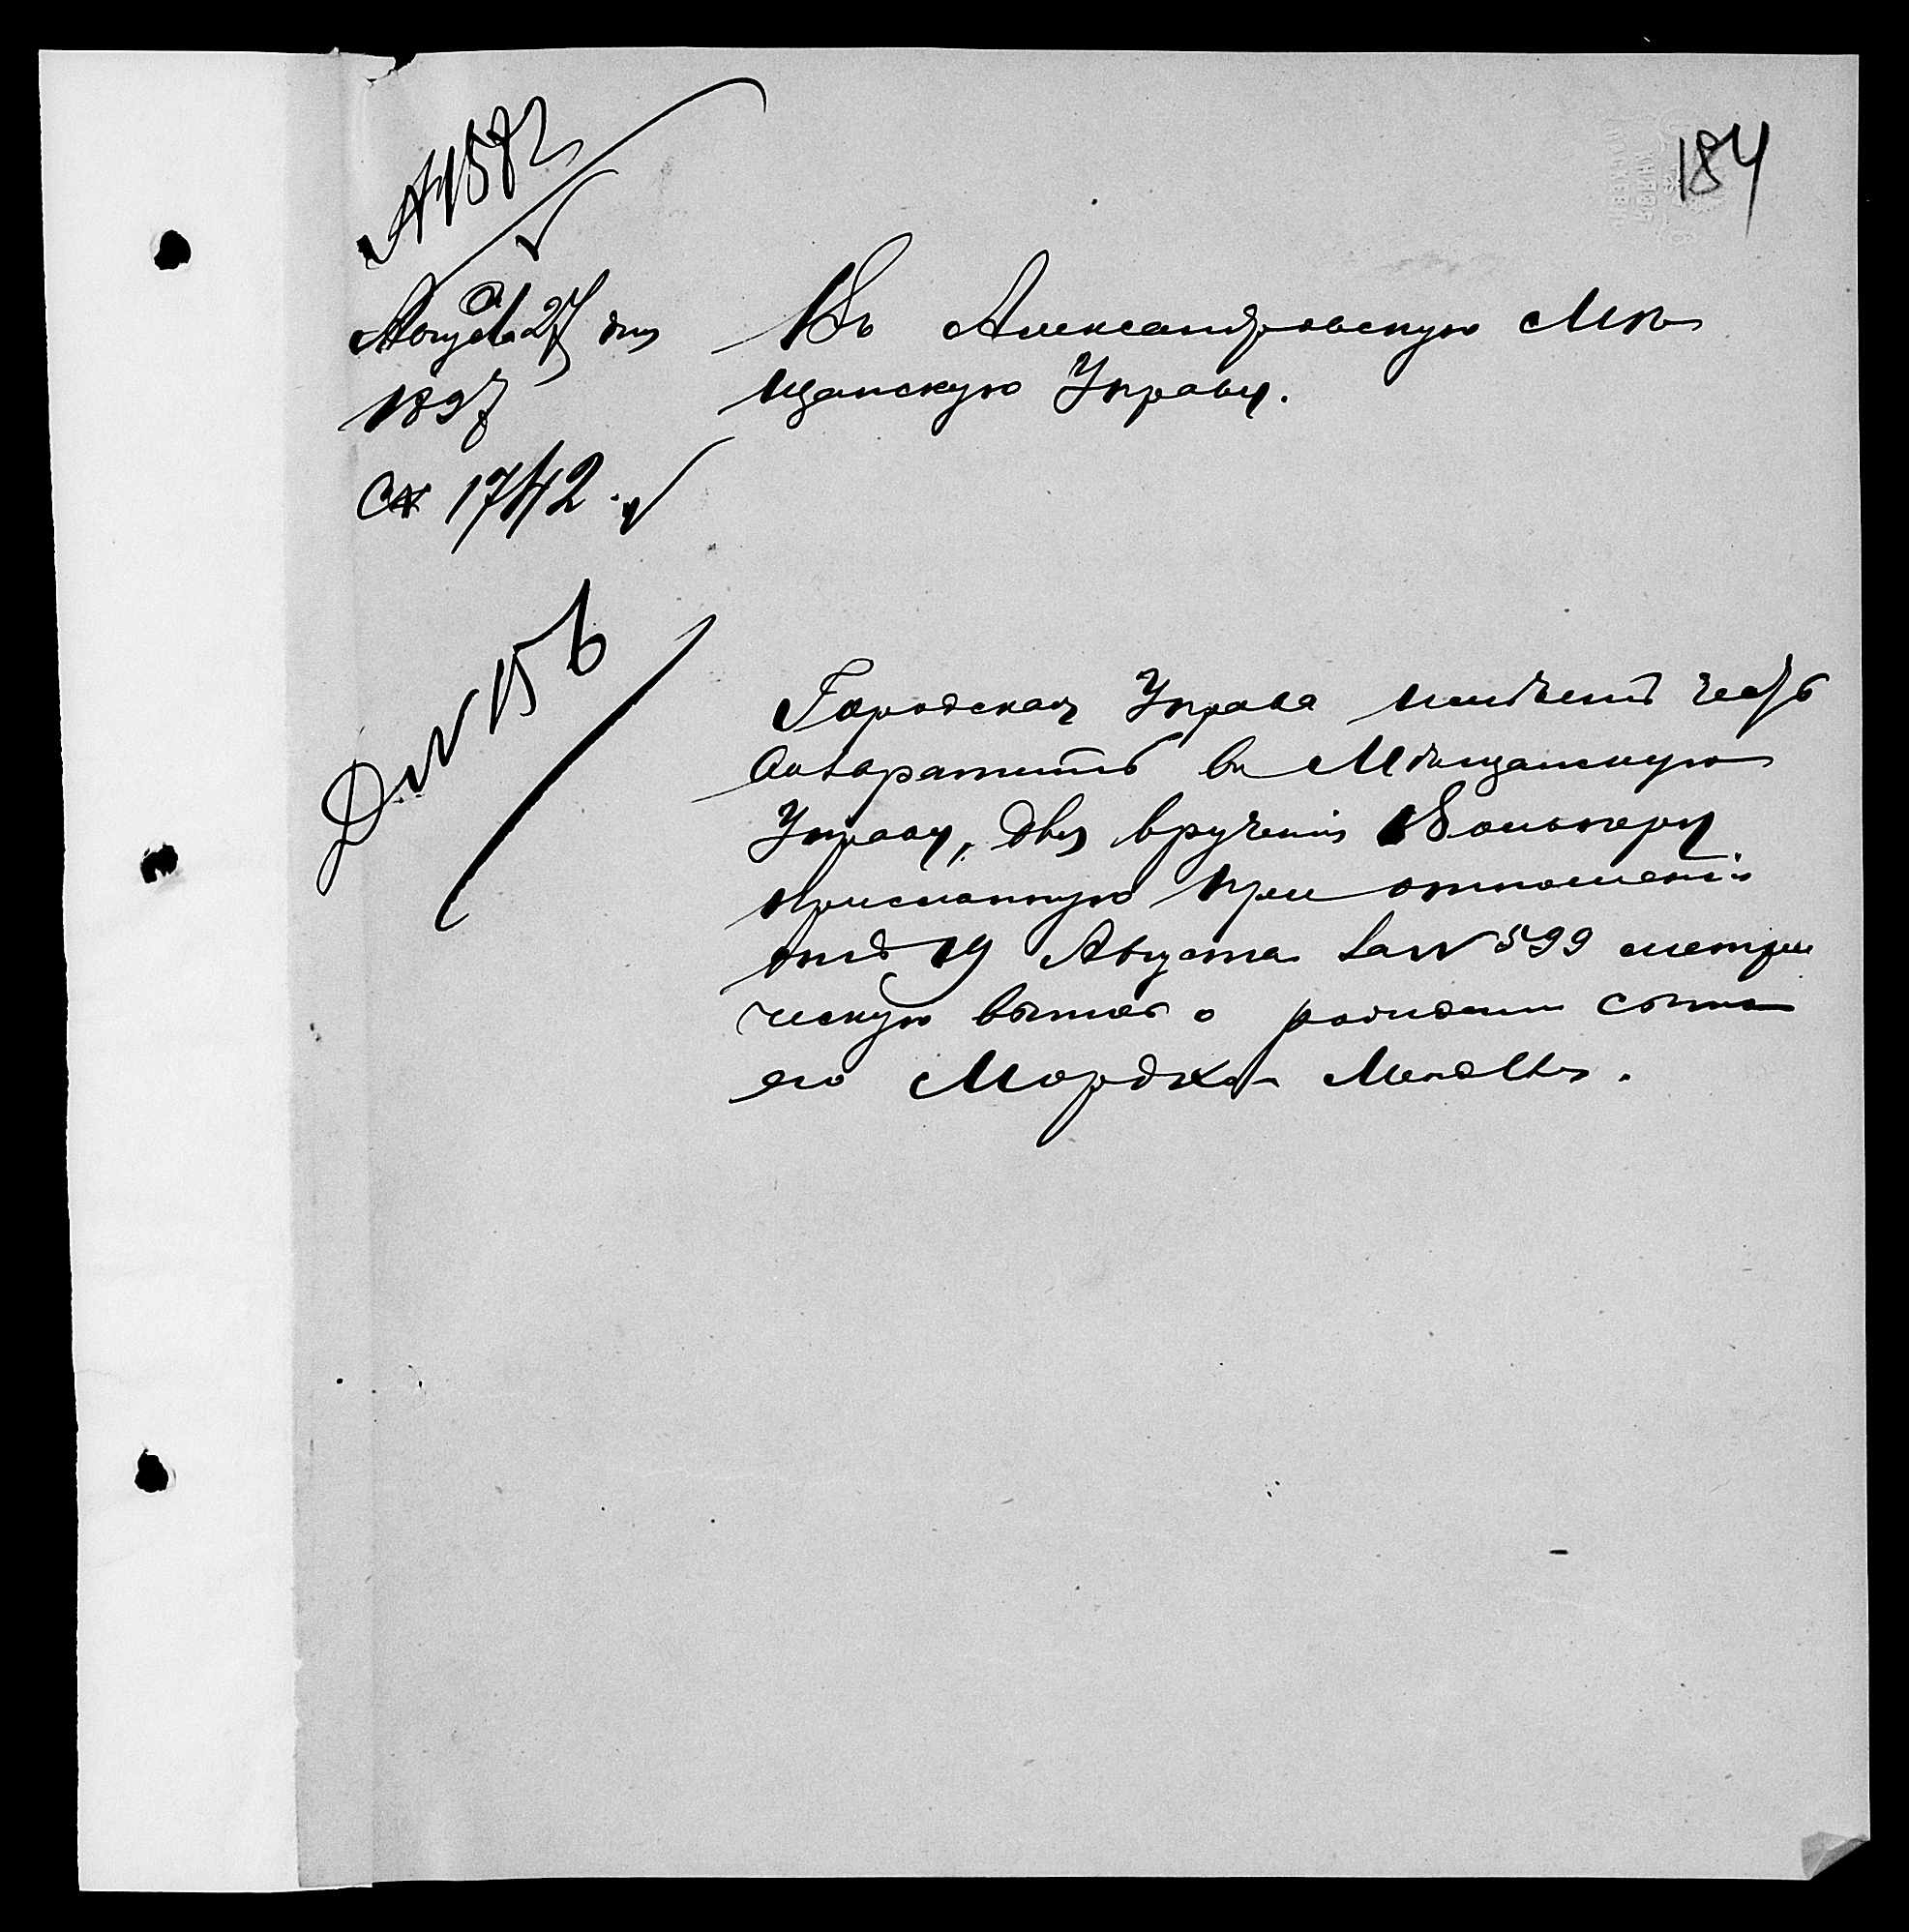 184
№ 1582
Августа 27 дня
1897
№ 1742.
Д№ 156
Въ Александровскую Мѣ
щанскую Управу.
Городская Управа имѣетъ честь
возвратить въ Мѣщанскую
Управу, для врученія
присланную при отношеніи
отъ 19 Августа за № 599 метри
ческую выпись о рожденіи сына
его Мордка Менделя.